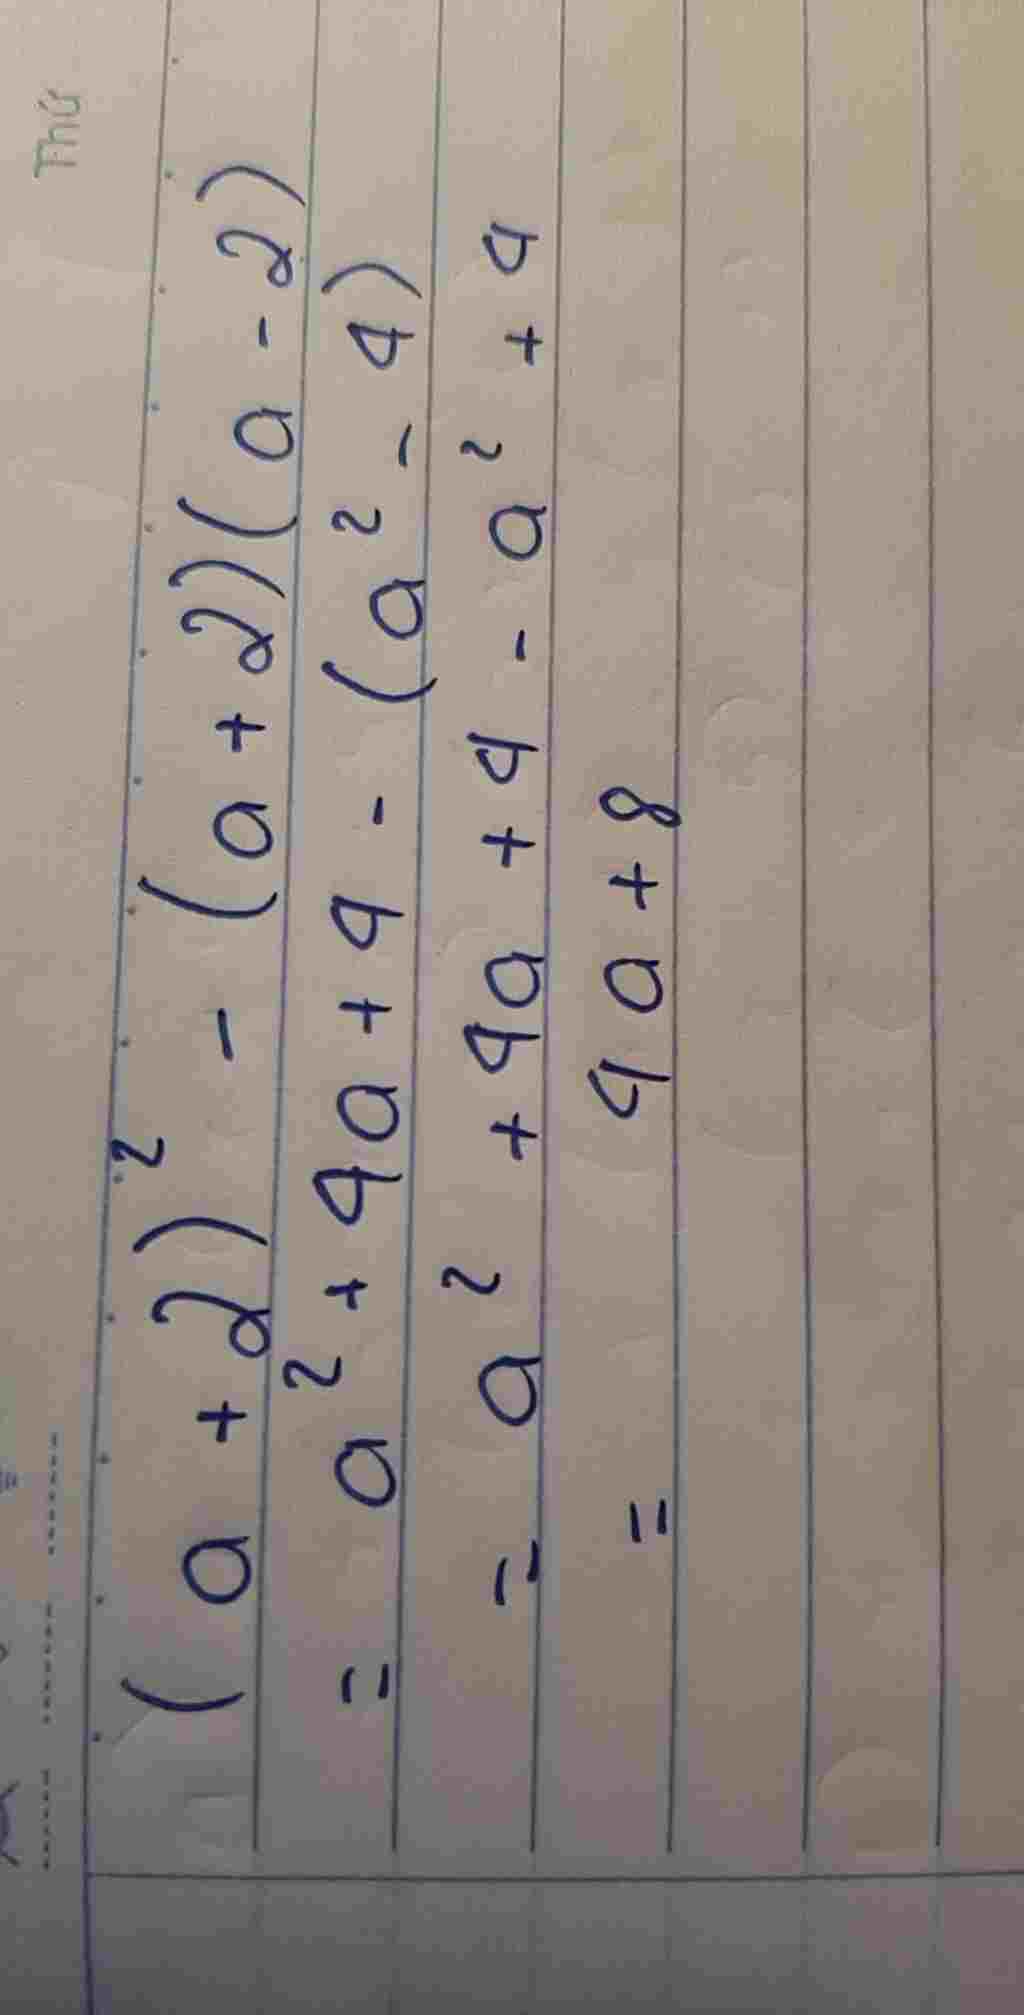 Thứ
(a + 2)² - (a + 2)(a - 2)
= a² + 4a + 4 - (a² - 4)
= a² + 4a + 4 - a² + 4
= 4a + 8